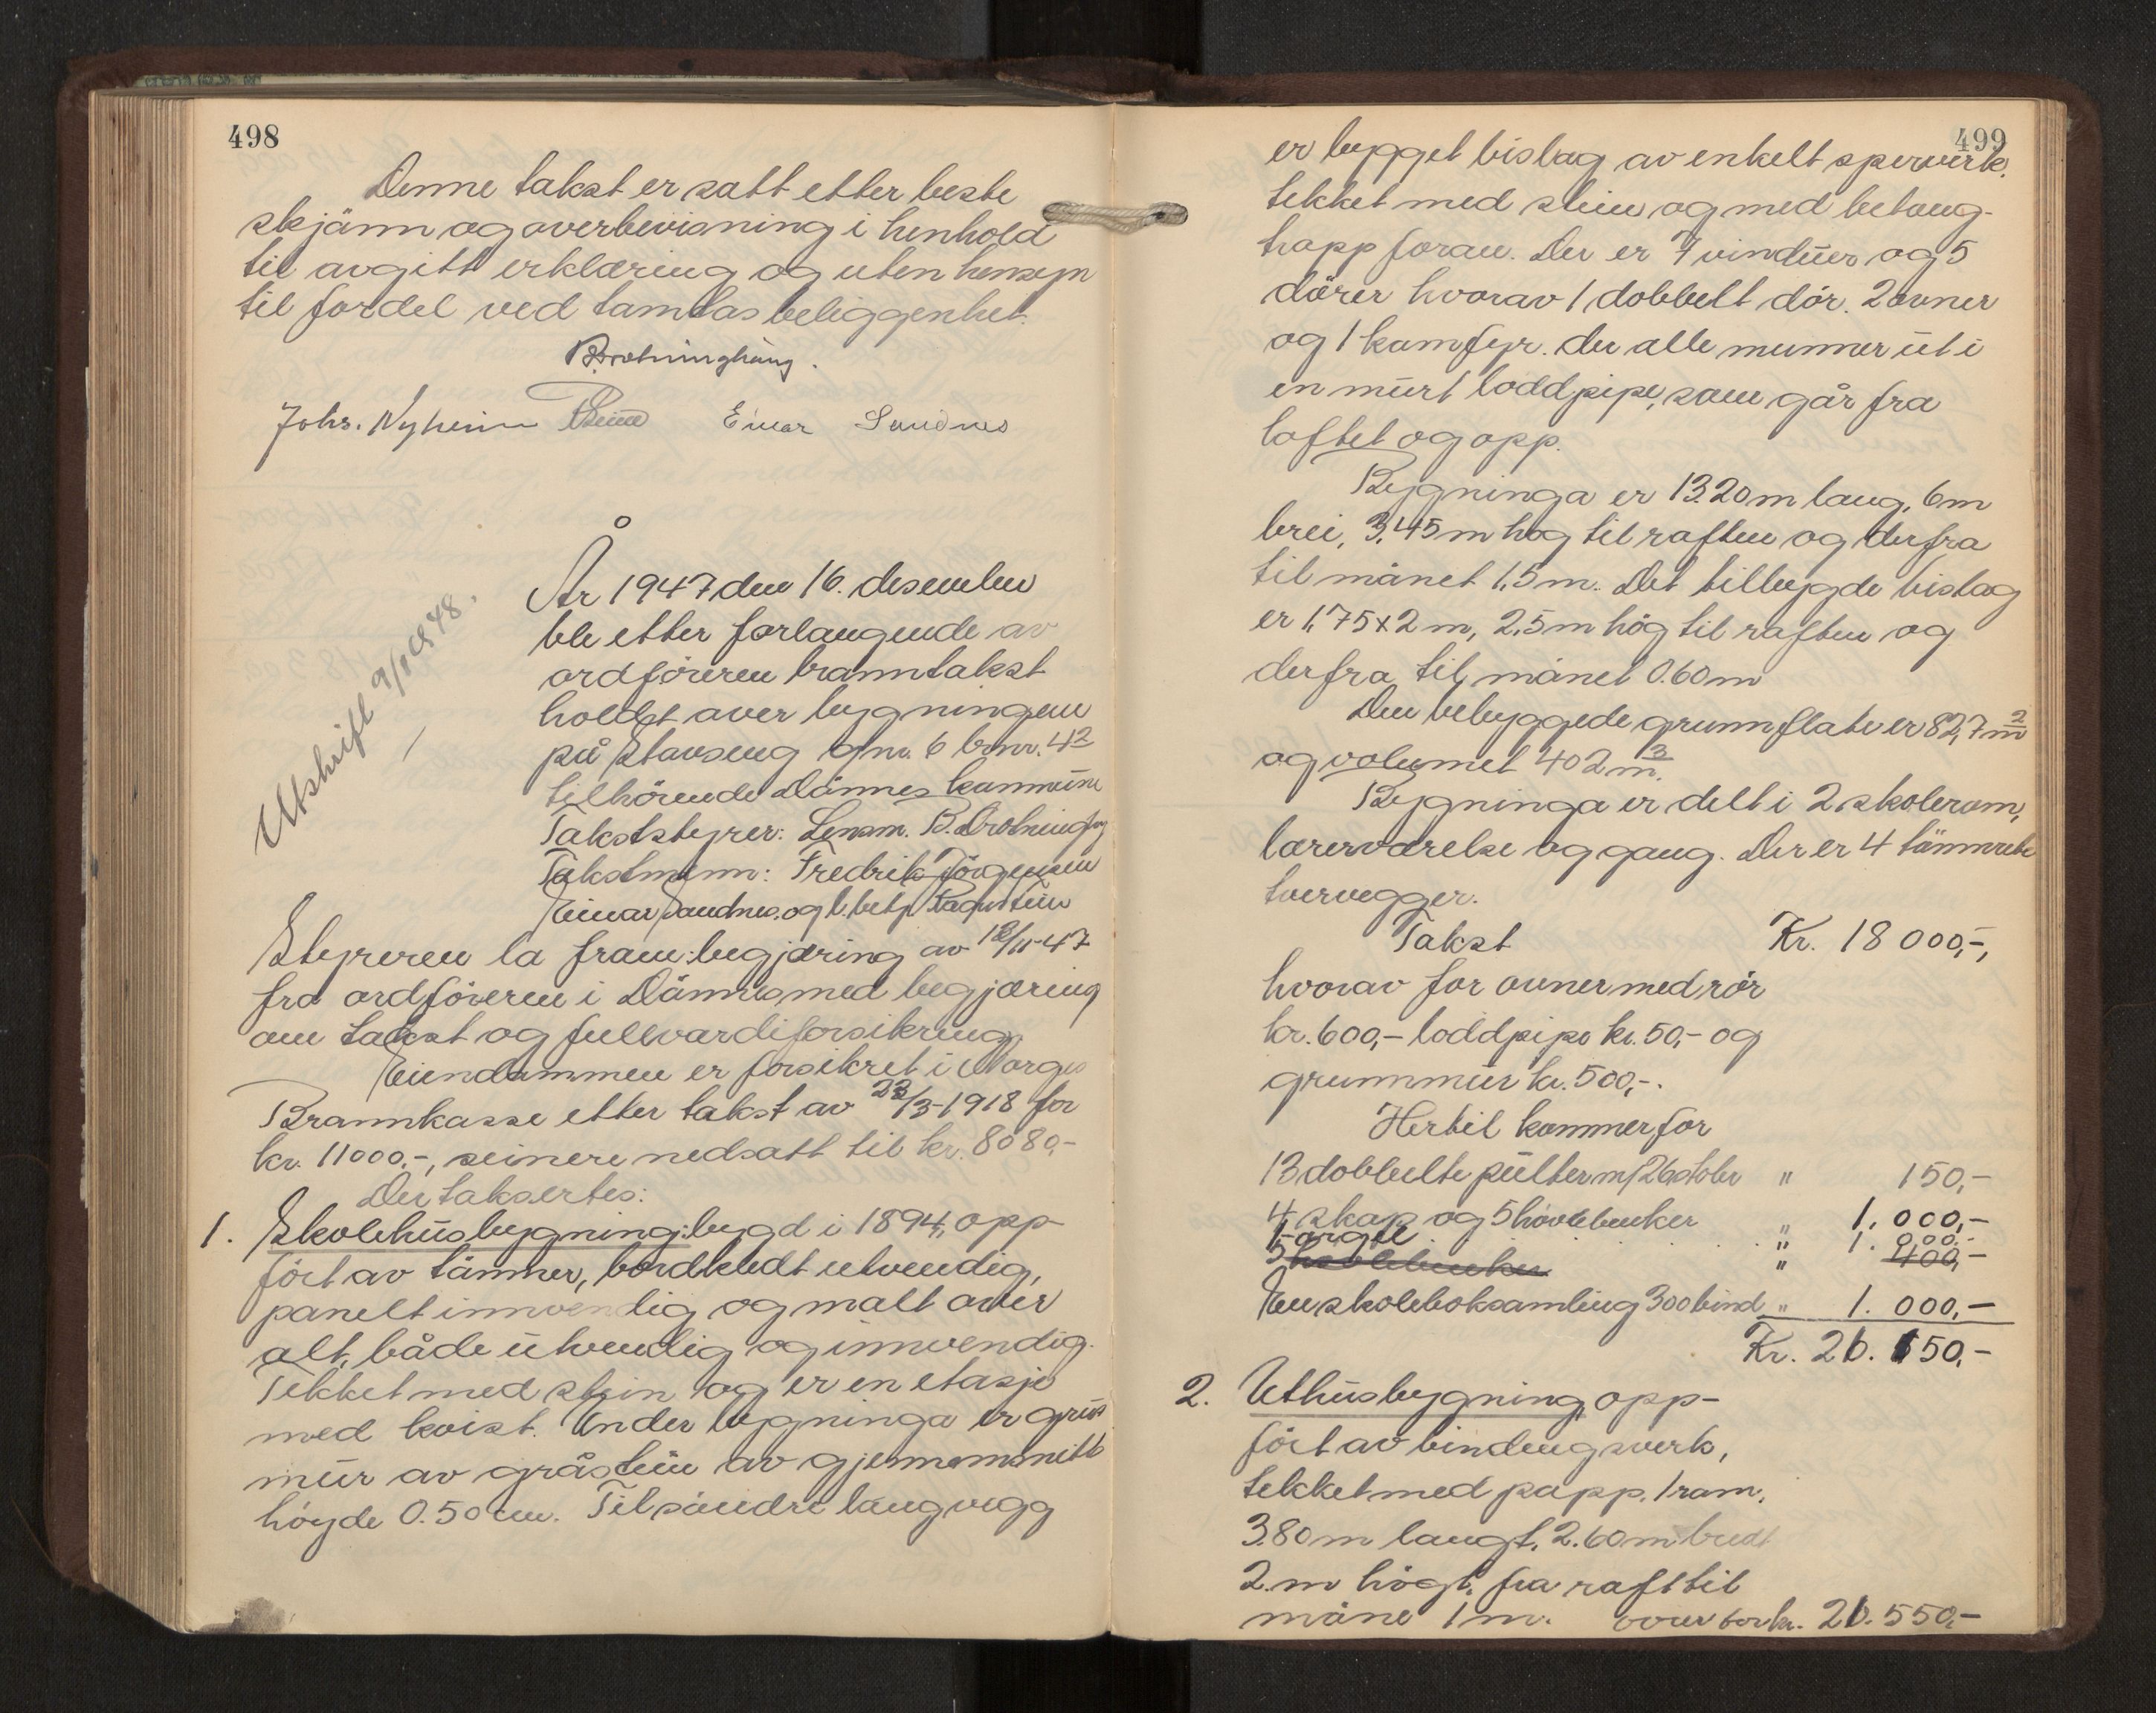 498
Denne takst er satt etter beste
skjönn og overbevisning i henhold
til avgitt erklæring og uten hensyn
til fordel ved tomtas beliggenhet.
B. Drotninghaug.
Johs. Nyheim Einar Sandnes
Utskrift 9/1 1948.
År 1947 den 16. desember
ble etter forlangende av
ordföreren branntakst
holdt over bygningen
på Stavseng gnr. 6 brnr. 42
tilhörende Dönnes kommune
Takststyrer: Lensm. B. Drotninghaug
Takstmenn: Fredrik Jörgensen
Einar Sandnes. og b.betj.
Styreren la fram: begjæring av 18/11-47
fra ordföreren i Dönnes med begjæring
om takst og fullverdiforsikring.
Eiendommen er forsikret i Norges
Brannkasse etter takst av 23/3-1918 for
kr. 11000,-, seinere nedsatt til kr. 8080,-
Der taksertes:
1. Skolehusbygning: bygd i 1894, opp-
fört av tömmer, bordkledt utvendig,
panelt innvendig og malt over
alt, både utvendig og innvendig.
Tekket med stein og er en etasje
med kvist. Under bygninga er grus
mur av gråstein av gjennomsnitt
höyde 0.50 cm. Til söndre langvegg
499
er bygget bislag av enkelt sperverk.
tekket med stein og med betong-
trapp foran. Der er 7 vinduer og 5
dörer hvorav 1 dobbelt dör. 2 ovner
og 1 komfyr. der alle munner ut i
en murt loddpipe, som går fra
loftet og opp.
Bygninga er 13.20 m lang, 6 m
brei, 3,45 m hög til raften og derfra
til mönet 1,5 m. Det tilbygde bislag
er 1,75 x 2 m, 2,5 m hög til raften og
derfra til mönet 0.60 m
Den bebyggede grunnflate er 82,7 m2
og volumet 402 m3.
Bygninga er delt i 2 skolerom,
lærerværelse og gang. Der er 4 tömrete
tvervegger.
Takst Kr. 18 000,-,
hvorav for ovner med rör
kr. 600,- loddpipe kr. 50,- og
grunnmur kr. 500,-.
Hertil kommer for
13 dobbelte pulter m/26 stoler " 150,-
4 skap og 5 hövlebenker " 1.000,-
1 orgel " 1.000,-
5 hövlebenker " 400,-
En skoleboksamling 300 bind " 1.000,-
Kr. 21.150,-
2. Uthusbygning, opp-
fört av bindingsverk,
tekket med papp. 1 rom,
3.80 m langt, 2.60 m bredt
2 m högt, fra raft til
möne 1 m. over for kr. 21.550,-